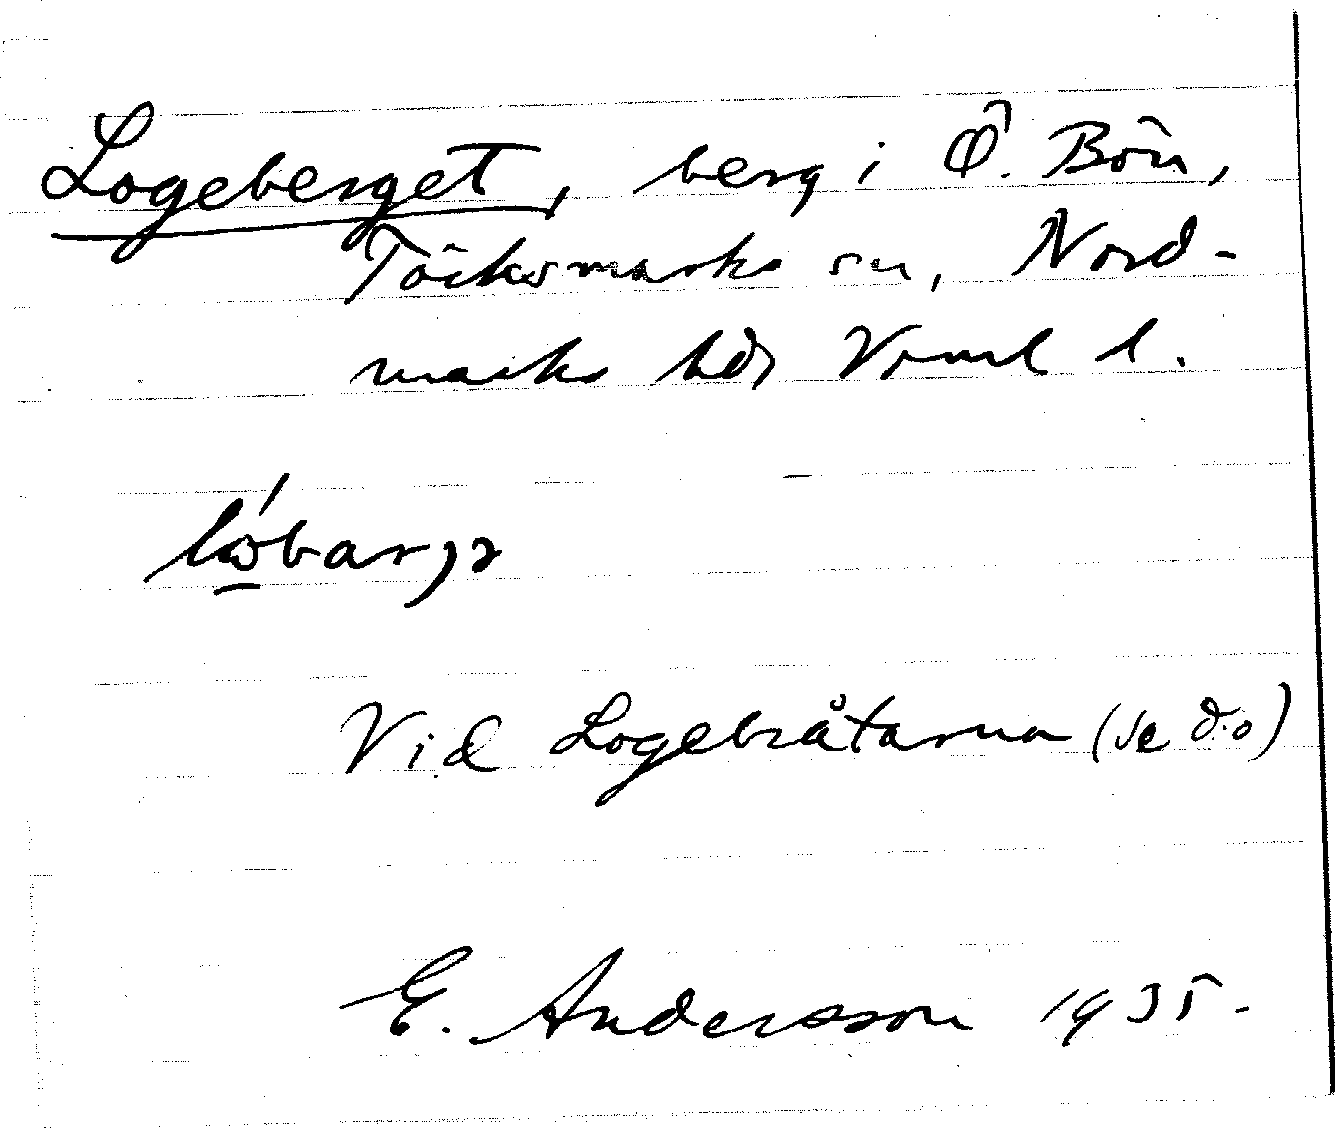 Logeberget, berg i Ö. Bön,
Töcksmarks sn, Nord-
marks hd, Verml l.
Vid Logebråtarna (se d.o)
E. Andersson 1935.